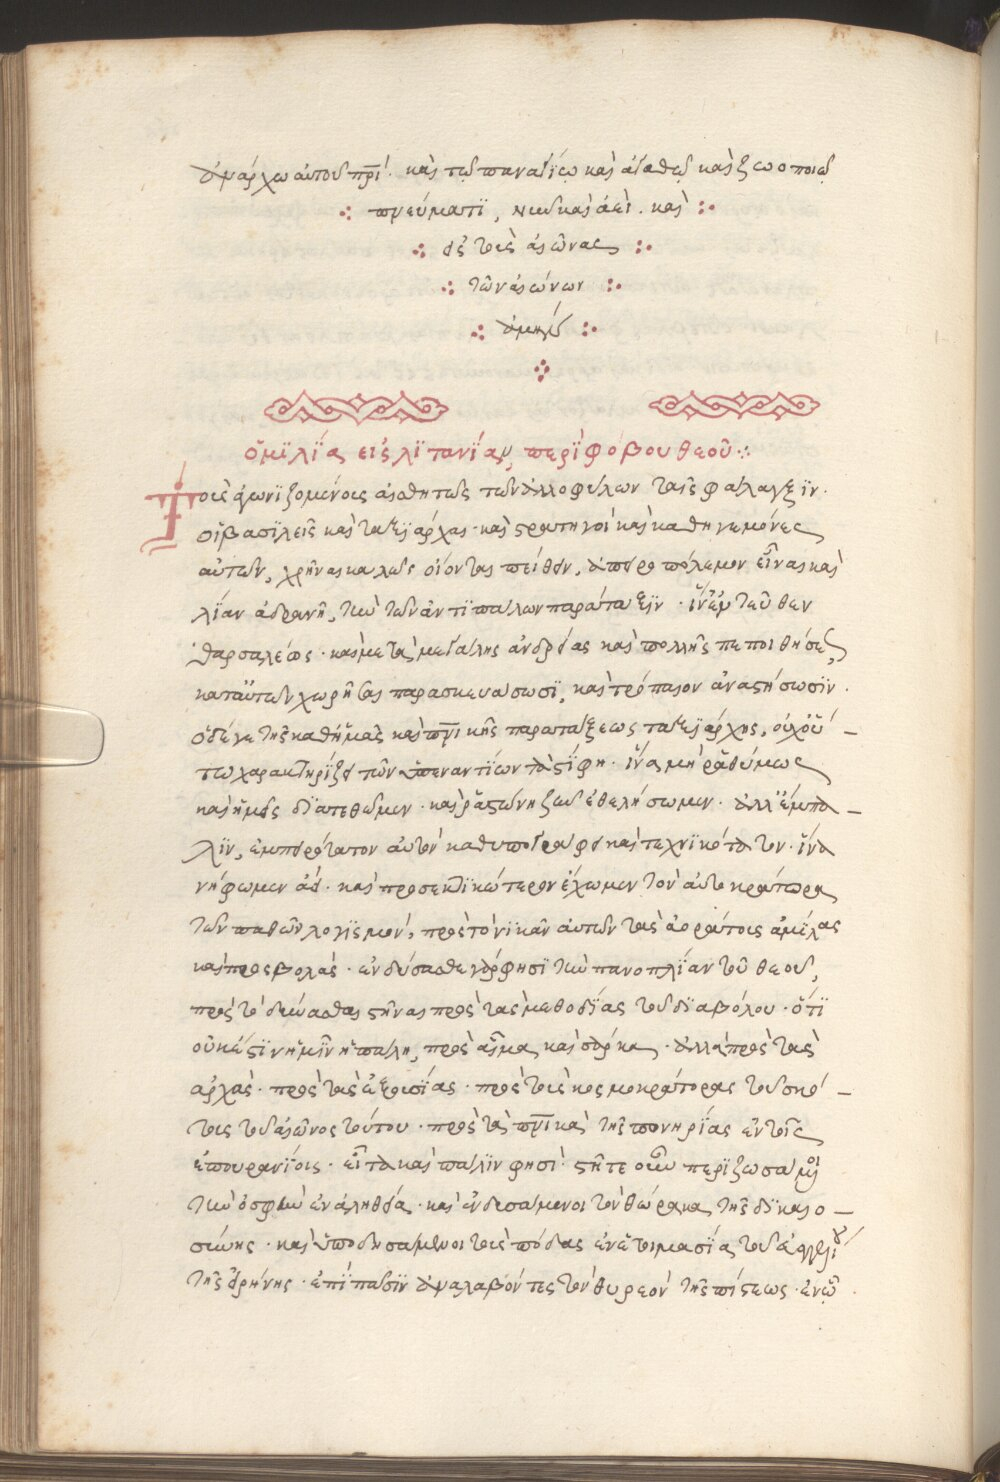 ἀνάρχω αὐτοῦ πρί· καὶ τῷ παναγίῳ καὶ ἀγαθῷ καὶ ζωοποιῷ
πνεύματϊ, νῦν καὶ ἀεὶ. καὶ
εἰς τοὺς αἰῶνας
τῶν αἰώνων
ἀμήν
ὁμϊλΐα εἰς λϊτανΐαν, περϊ φόβου θεοῦ
Τοῖς ἀγωνϊζομένοις αἰσθητῶς τῶν ἀλλοφύλων ταῖς φάλαγξϊν.
οἱ βασϊλεῖς καὶ ταξϊάρχαι· καὶ στρατηγοὶ καὶ καθηγεμόνες
αὐτῶν, χρῆναι καλῶς οἴονται πείθειν, ἀπειροπόλεμον εἶναι καὶ
λΐαν ἀδρανῆ, τὴν τῶν ἀντϊπάλων παράταξϊν· ἵν' ἐντεῦθεν
θαρσαλέως· καὶ μετὰ μεγάλης ἀνδρείας καὶ πολλῆς πεποιθήσεως
κατ' αὐτῶν χωρῆσαι παρασκευάσωσϊ, καὶ τρόπαιον ἀναστήσωσϊν.
ὁ δέ γε τῆς καθ' ἡμᾶς καὶ πνικῆς παρατάξεως ταξϊάρχης, οὐχ οὕ-
τω χαρακτηρΐζει τῶν ὑπεναντΐων τὰ στΐφη· ἵνα μὴ ῥαθύμως
καὶ ἡμεῖς δϊατεθῶμεν· καὶ ῥᾳστώνη ζῆν ἐθελήσωμεν· ἀλλ' ἔμπα-
λϊν, ἐμπειρότατον αὐτὸν καθυπογράφει καὶ τεχνϊκότατον· ἵνα
νήφωμεν ἀεὶ· καὶ προσεκτϊκώτερον ἔχωμεν τὸν αὐτοκράτορα
τῶν παθῶν λογϊσμὸν, πρὸς τὸ νϊκᾶν αὐτῶν τὰς ἀοράτους ἁμΐλας
καὶ προσβολάς· ἐνδύσασθε γάρ φησϊ τὴν πανοπλΐαν τοῦ θεοῦ,
πρὸς τὸ δύνασθαι στῆναι πρὸς τὰς μεθοδΐας τοῦ δϊαβόλου· ὅτϊ
οὐκ ἔστϊν ἡμῖν ἡ πάλη, πρὸς αἷμα καὶ σάρκα· ἀλλὰ πρὸς τὰς
ἀρχὰς· πρὸς τὰς ἐξουσΐας· πρὸς τοὺς κοσμοκράτορας τοῦ σκό-
τους τοῦ αἰῶνος τούτου· πρὸς τὰ πνικὰ τῆς πονηρΐας ἐν τοῖς
ἐπουρανΐοις· εἶτα καὶ πάλϊν φησὶ· στῆτε οὖν περϊζωσάμνοι
τὴν ὀσφὺν ἐν ἀληθείᾳ· καὶ ἐνδυσάμενοι τὸν θώρακα τῆς δϊκαιο-
σύνης· καὶ ὑποδησάμενοι τοὺς πόδας ἐν ἑτοιμασΐα τοῦ εὐαγγελίου
τῆς εἰρήνης· ἐπΐ πᾶσϊν ἀναλαβόντες τὸν θυρεὸν τῆς πίστεως· ἐν ᾧ